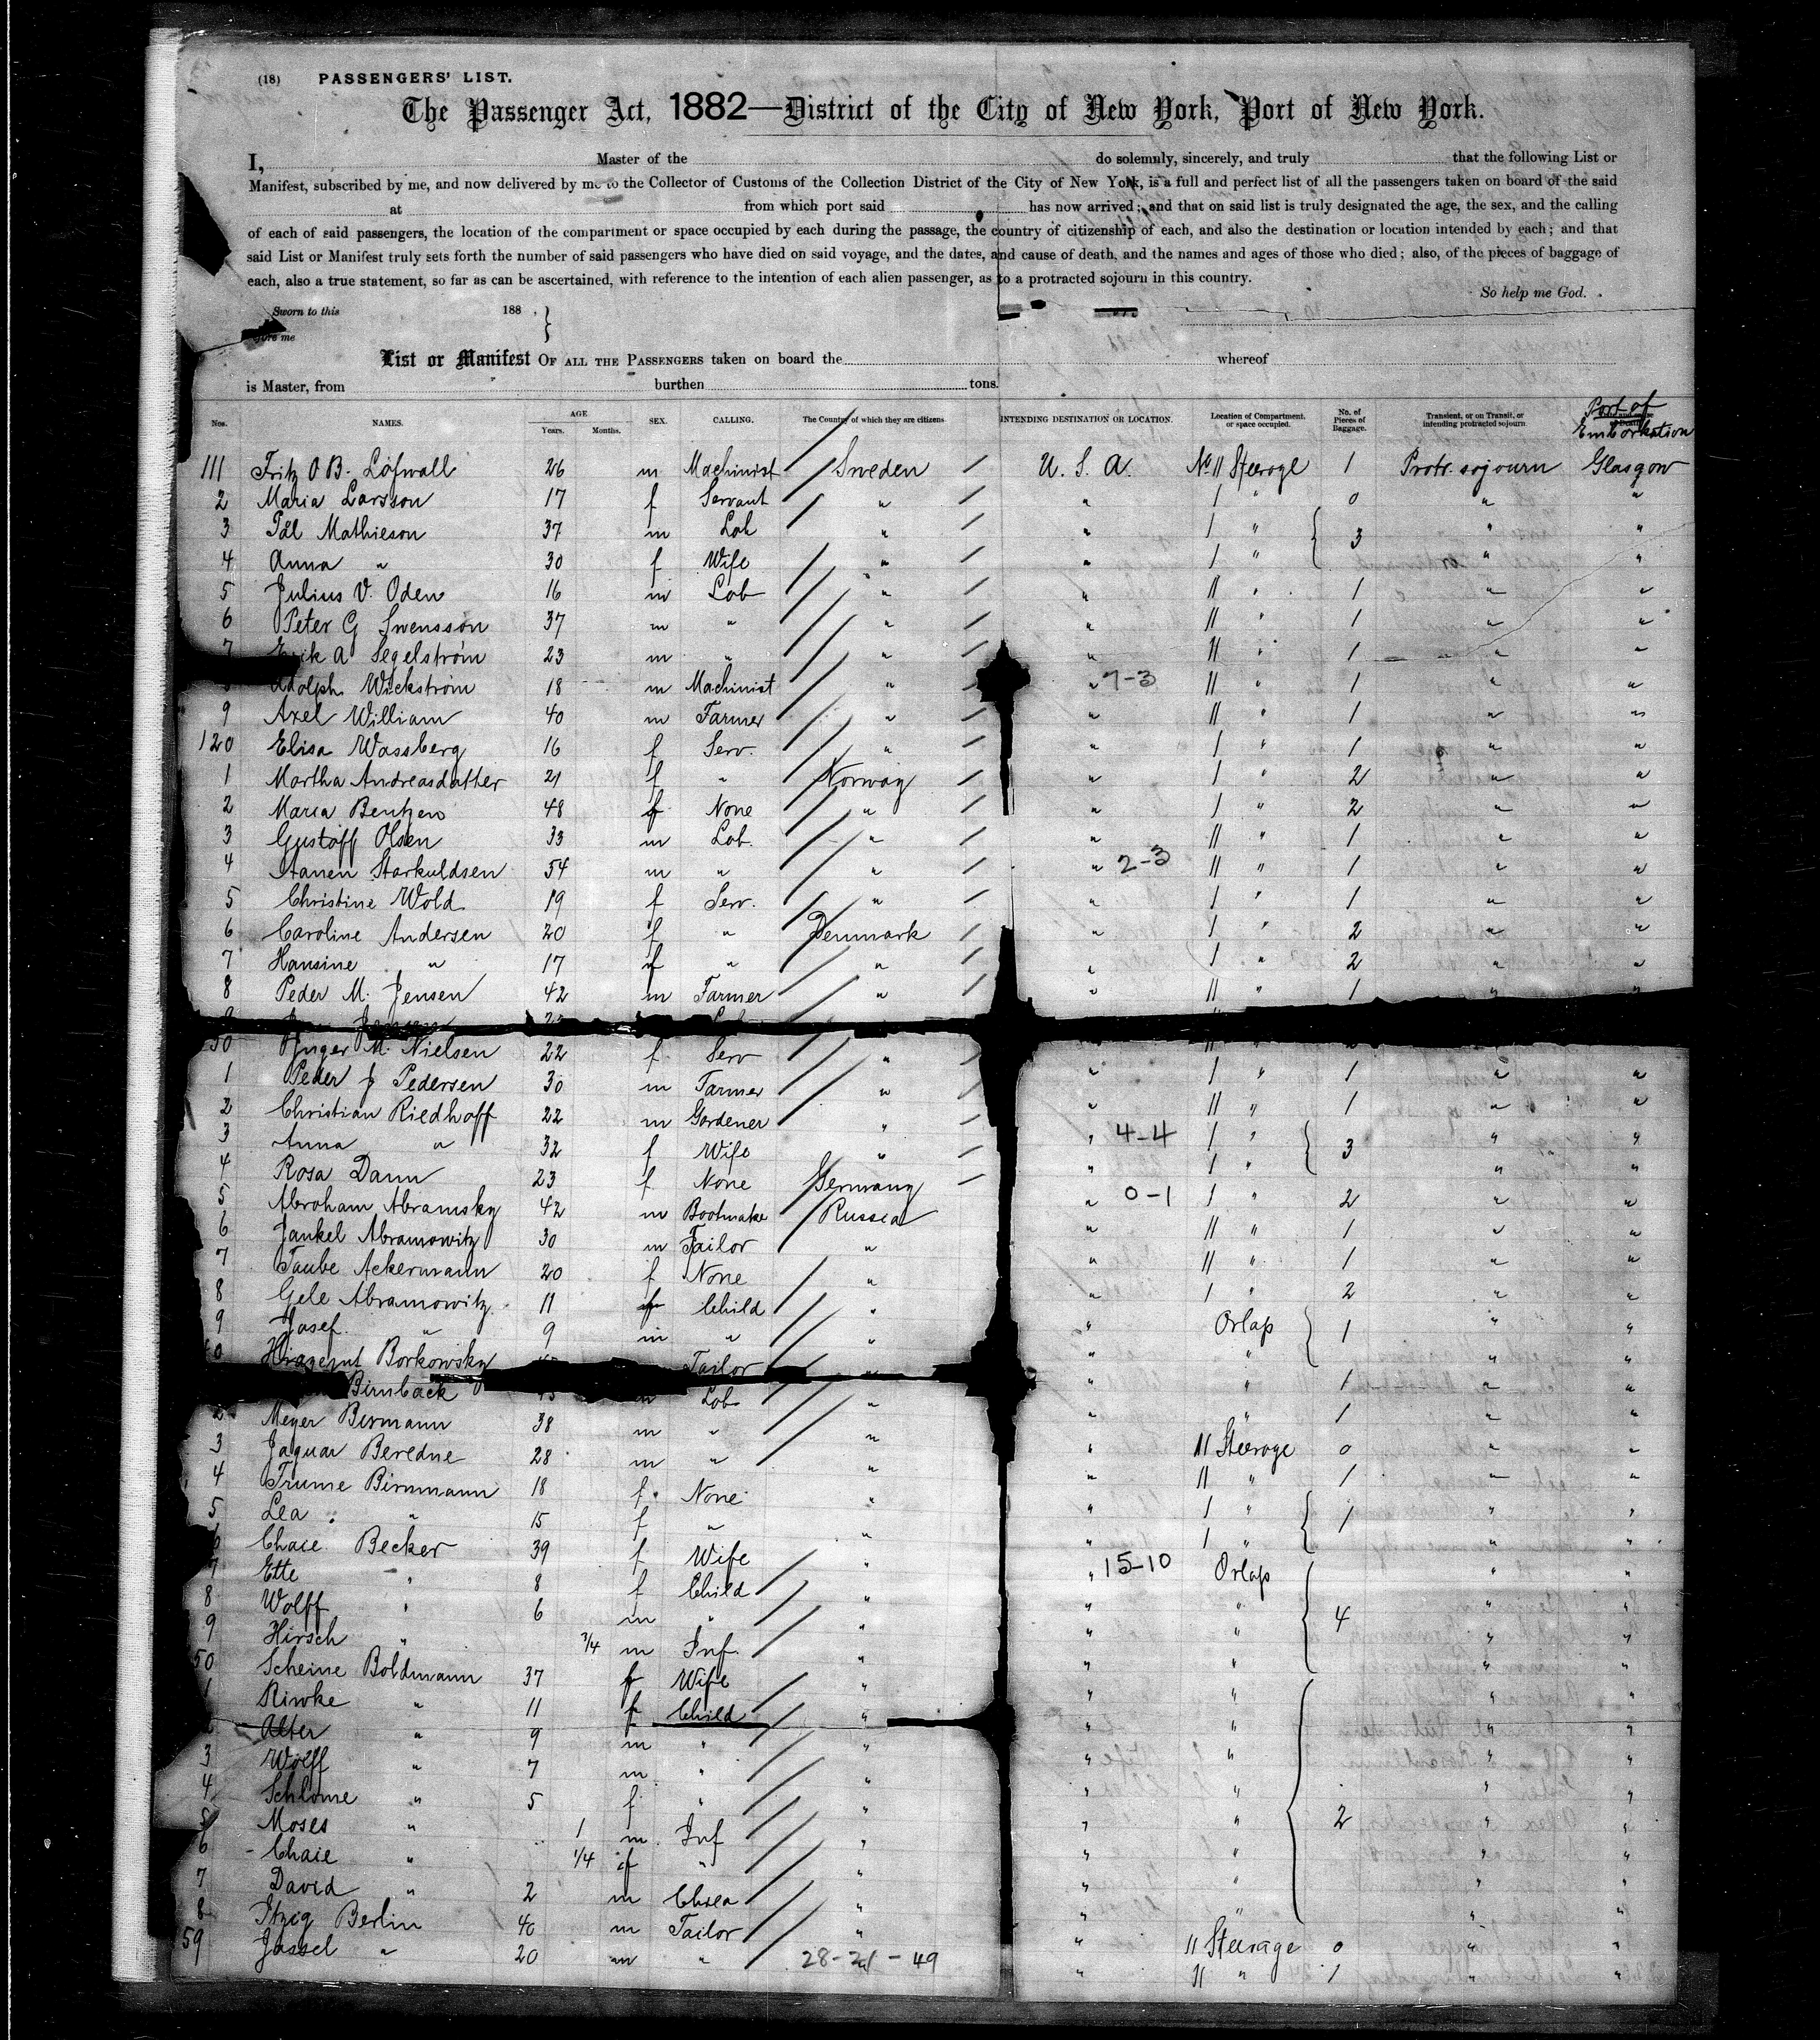 (18) PASSENGERS' LIST.
The Passenger Act, 1882—District of the City of New York, Port of New York.
I, Master of the do solemnly, sincerely, and truly that the following List or
Manifest, subscribed by me, and now delivered by me to the Collector of Customs of the Collection District of the City of New York, is a full and perfect list of all the passengers taken on board of the said
at from which port said has now arrived; and that on said list is truly designated the age, the sex, and the calling
of each of said passengers, the location of the compartment or space occupied by each during the passage, the country of citizenship of each, and also the destination or location intended by each; and that
said List or Manifest truly sets forth the number of said passengers who have died on said voyage, and the dates, and cause of death, and the names and ages of those who died; also, of the pieces of baggage of
each, also a true statement, so far as can be ascertained, with reference to the intention of each alien passenger, as to a protracted sojourn in this country.
So help me God.
Sworn to this 188 .
me
List or Manifest OF ALL THE PASSENGERS taken on board the whereof
is Master, from burthen tons.
Nos. NAMES. AGE Years. Months. SEX. CALLING. The Country of which they are citizens INTENDING DESTINATION OR LOCATION. Location of Compartment, or space occupied. No. of Pieces of Baggage. Transient, or on Transit, or intending protracted sojourn Port of Emborkation
111 Fritz O B. Löfwall 26 m Machinist Sweden U. S. A. No 11 Steerage 1 Protr. sojourn Glasgow
2 Maria Larsson 17 f Servant " " 1 " 0 " "
3 Pål Mathieson 37 m Lab " " 1 " 3 " "
4 Anna " 30 f Wife " " 1 " " "
5 Julius V. Oden 16 m Lab " " 11 " 1 " "
6 Peter G Swensson 37 m " " " 11 " 1 " "
7 Erik A Segelström 23 m " " " 11 " 1 " "
Adolph Wickström 18 m Machinist " " 7-3 11 " 1 " "
9 Axel William 40 m Farmer " " 11 " 1 " "
120 Elisa Wassberg 16 f Serv. " " 1 " 1 " "
1 Martha Andreasdatter 21 f " Norway " 1 " 2 " "
2 Maria Bentzen 48 f None " " 1 " 2 " "
3 Gustaff Olsen 33 m Lab. " " 11 " 1 " "
4 Starkuldsen 54 m " " " 2-3 11 " 1 " "
5 Christine Wold 19 f Serv. " " 1 " 1 " "
6 Caroline Andersen 20 f " Denmark " 1 " 2 " "
7 Hansine " 17 f " " " 1 " 2 " "
8 Peder M. Jensen 42 m Farmer " " 11 " 1 " "
30 Inger M. Nielsen 22 f Serv " " 1 " 1 " "
1 Peder J Pedersen 30 m Farmer " " 11 " 1 " "
2 Christian Riedhoff 22 m Gardener " " 4-4 1 " 3 " "
3 Anna " 32 f Wife " " 1 " " "
4 Rosa Dann 23 f None Germany " 0-1 1 " 2 " "
5 Abraham Abramsky 42 m Bootmaker Russia " 11 " 1 " "
6 Jankel Abramowitz 30 m Tailor " " 11 " 1 " "
7 Taube Ackermann 20 f None " " 1 " 2 " "
8 Gele Abramowitz 11 f Child " " Orlap 1 " "
9 Josef " 9 m " " " " " "
40 Borkowsky Tailor " " " 1 " "
Birnback m Lab " " " 1 " "
2 Meyer Bermann 38 m " " " 11 Steerage 0 " "
3 Beredne 28 m " " " 11 " 1 " "
4 Birnmann 18 f None " " 1 " 1 " "
5 Lea " 15 f " " " 1 " " "
6 Chaie Becker 39 f Wife " " 15-10 Orlap 4 " "
7 Ette " 8 f Child " " " " "
8 Wolff " 6 m " " " " " "
9 Hirsch " 3/4 m Inf. " " " " "
50 Scheine Boldmann 37 f Wife " " " 2 " "
1 Riwke " 11 f Child " " " " "
Alter " 9 m " " " " " "
3 Wolff " 7 m " " " " " "
4 Schlome " 5 f " " " " " "
5 Moses " 1 m. Inf " " " " "
6 Chaie " 1/4 f " " " " " "
7 David " 2 m " " " " "
8 Itzig Berlin 40 m Tailor " " 11 Steerage 0 " "
59 Jossel " 20 m " 28-21-49 " 11 " 1 " "